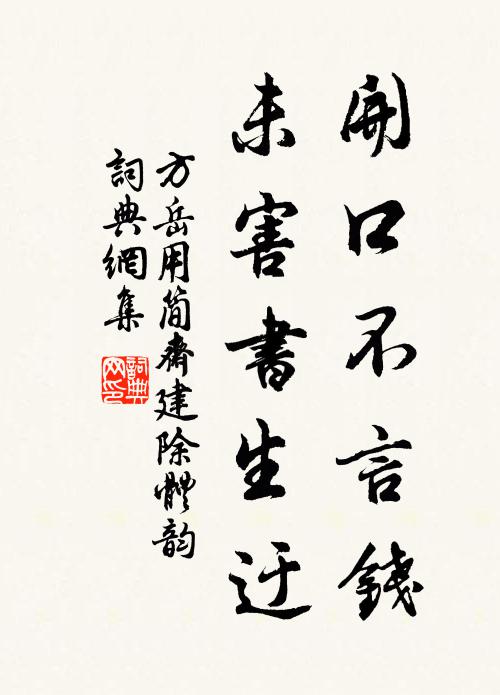 開口不言錢
未害書生迂
方岳用簡齋建除體韵
詞典網集
詞典
网印